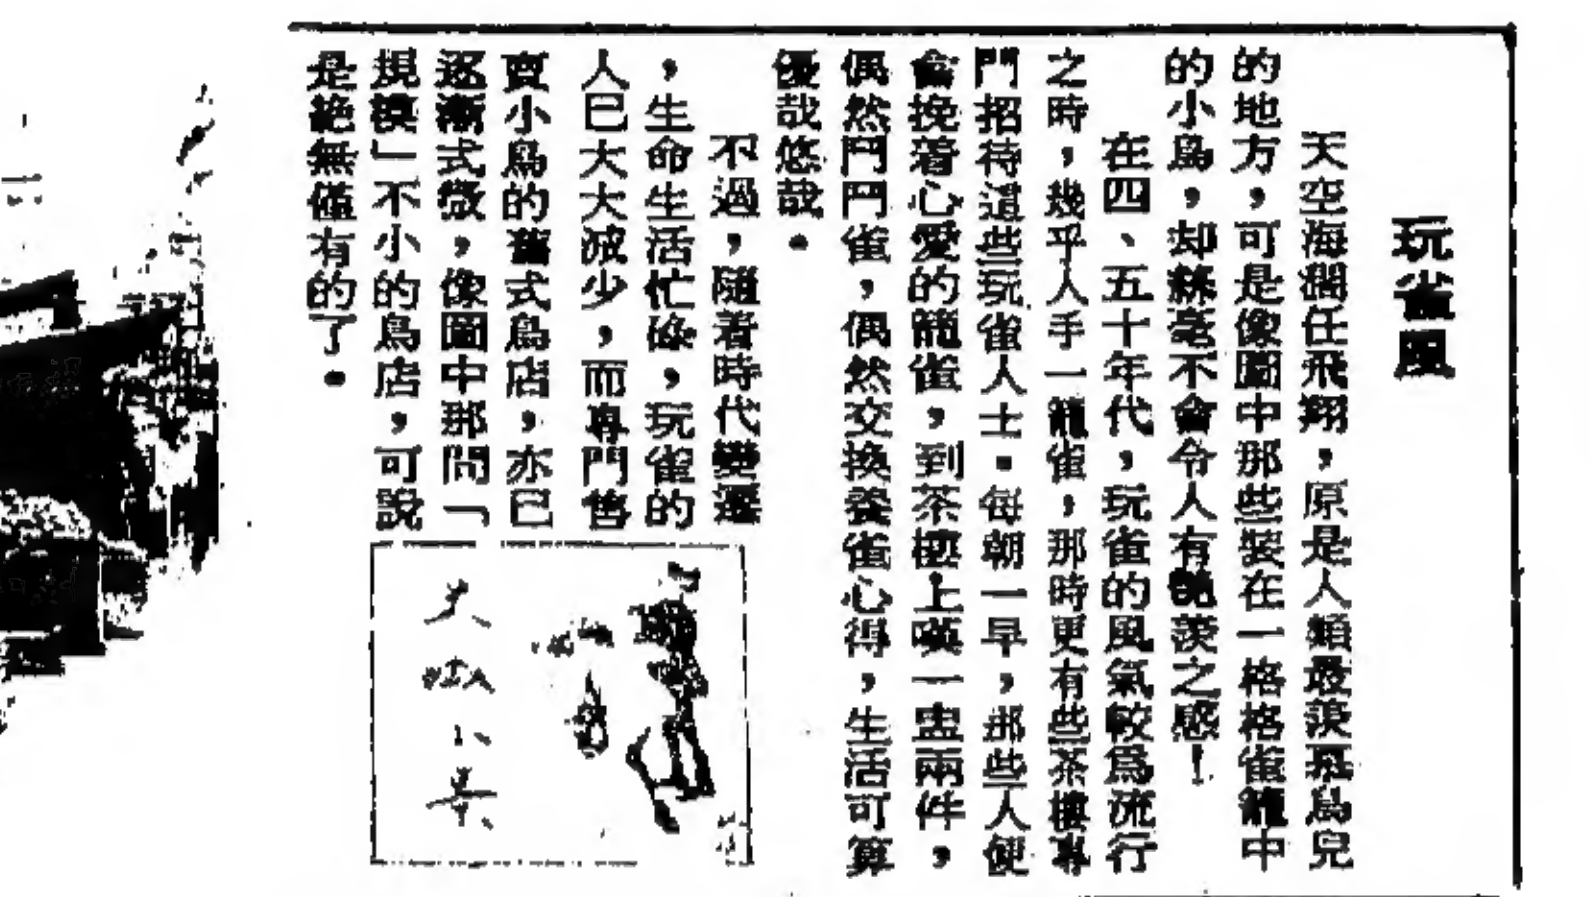 玩雀風
天空海濶任飛翔，原是人類最羨慕鳥兒
的地方，可是像圖中那些裝在一格格雀籠中
的小鳥，却絲毫不會令人有艷羨之感！
在四、五十年代，玩雀的風氣較爲流行
之時，幾乎人手一籠雀，那時更有些茶樓專
門招待這些玩雀人士。每朝一早，那些人便
會挽着心愛的籠雀，到茶樓上嘆一盅兩件，
偶然鬥鬥雀，偶然交換養雀心得，生活可算
優哉悠哉。
不過，隨着時代變遷
，生命生活忙碌，玩雀的
人已大大減少，而專門售
賣小鳥的舊式鳥店，亦已
逐漸式微，像圖中那間「
規模」不小的鳥店，可說
是絕無僅有的了。
小景